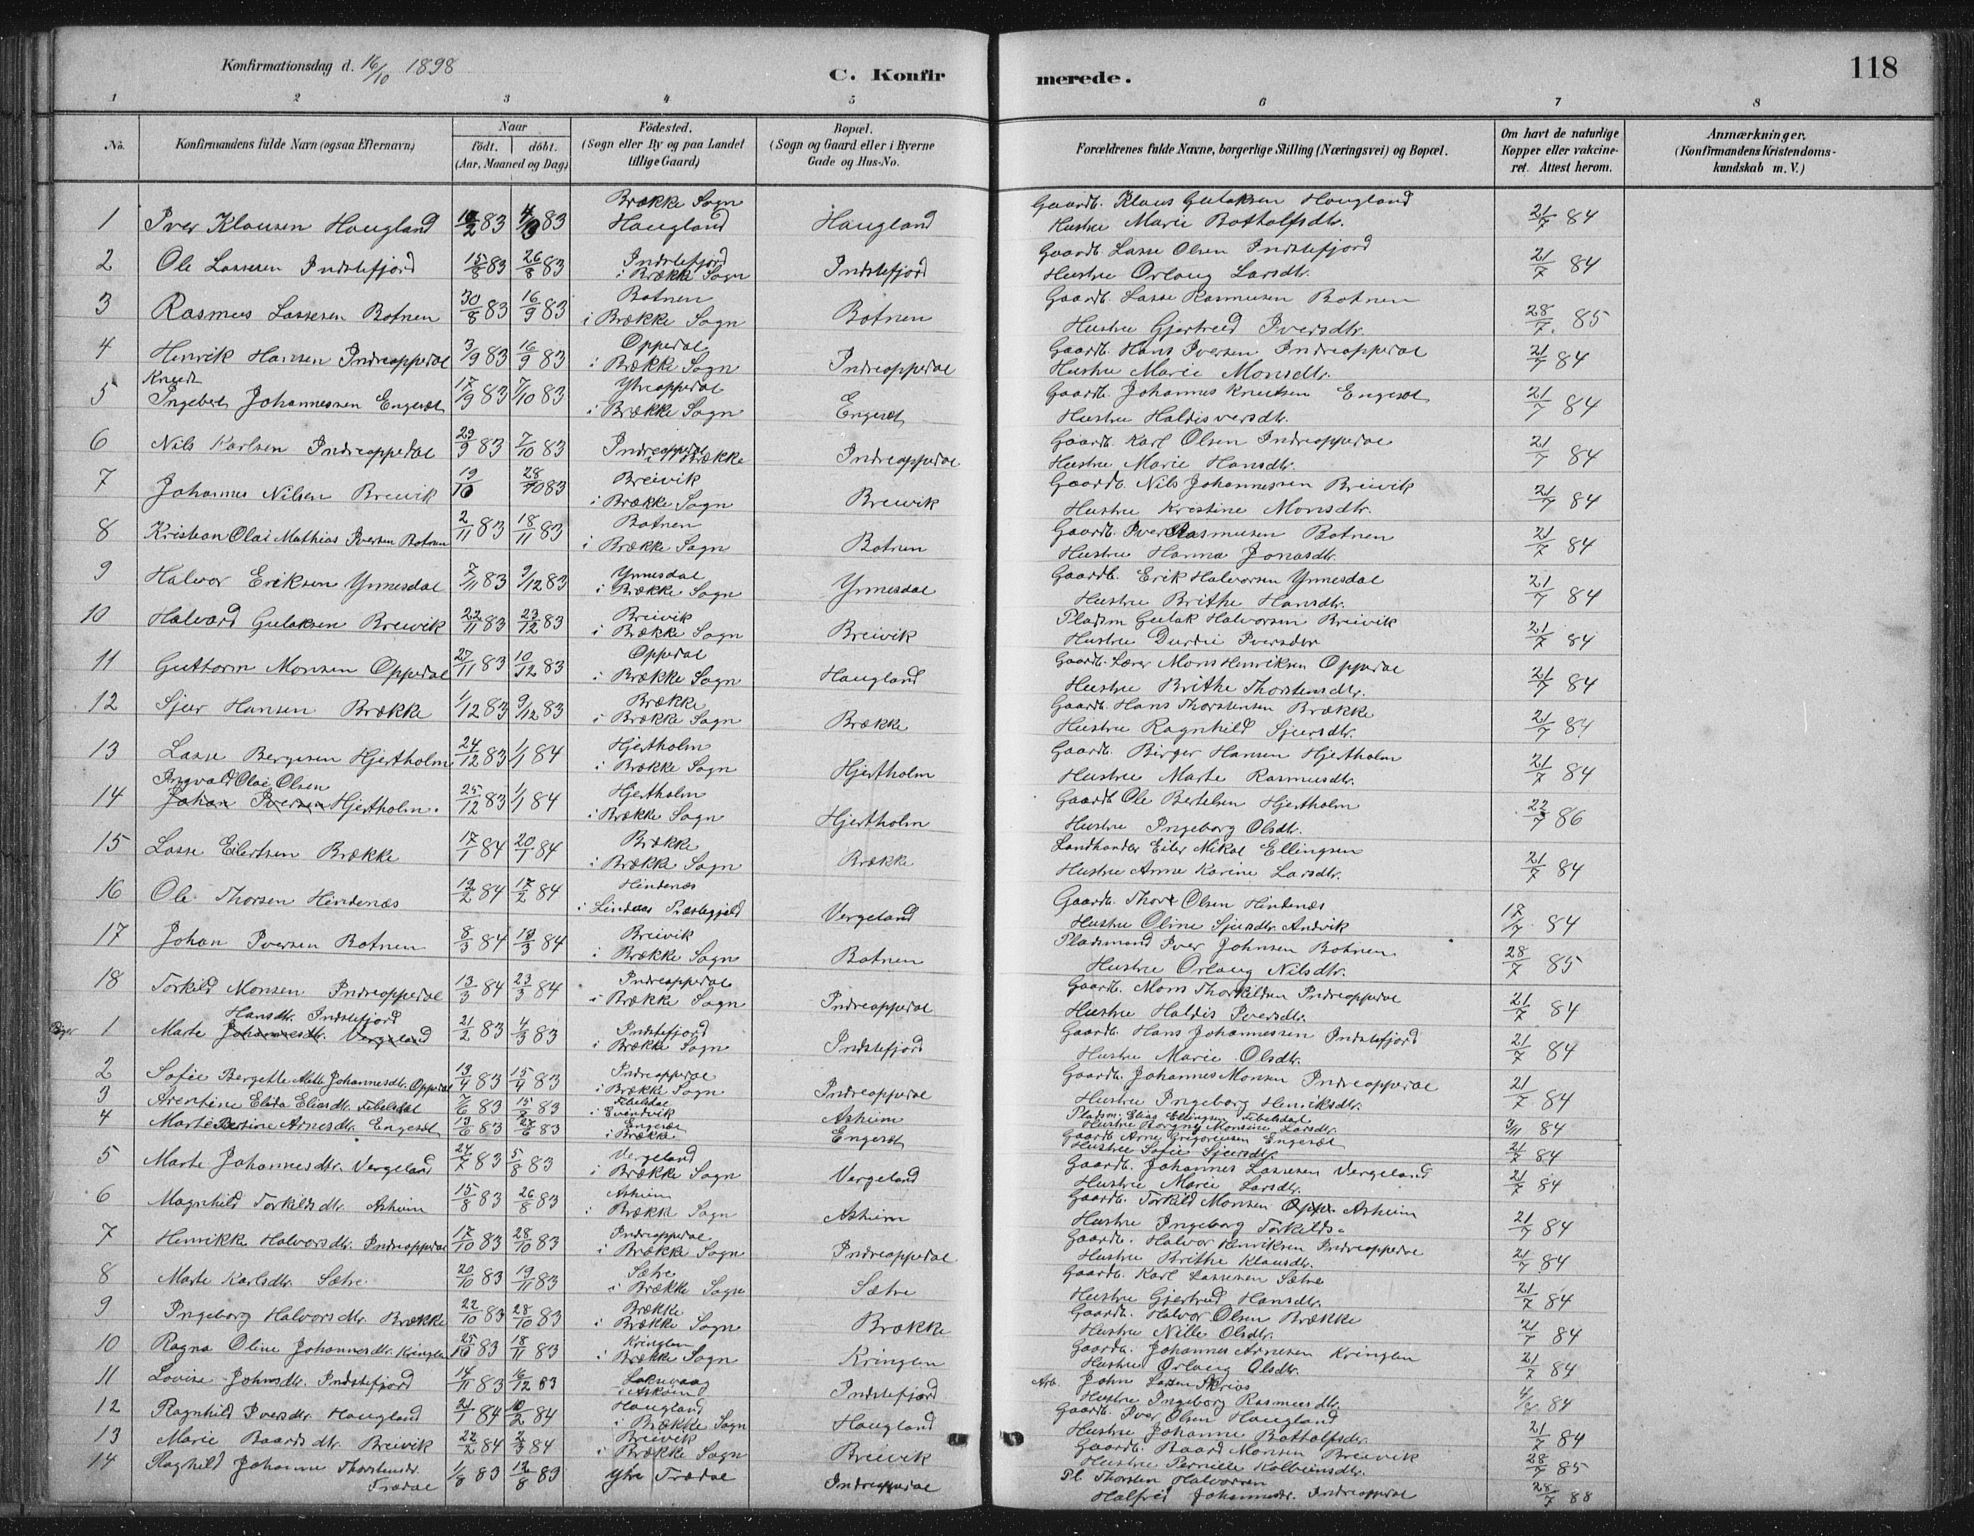 Konfirmationsdag d. 16/10 1898
C. Konfir
merede.
118
1 2 3 4 5 6 7 8
No.
Konfirmandens fulde Navn (ogsaa Efternavn)
Naar
födt. döbt.
(Aar, Maaned og Dag)
Födested.
(Sogn eller By og paa Landet tillige Gaard)
Bopæl.
(Sogn og Gaard eller i Byerne Gade og Hus-No.
Forældrenes fulde Navne, borgerlige Stilling (Næringsvei) og Bopæl.
Om havt de naturlige Kopper eller vakcineret. Attest herom.
Anmærkninger.
(Konfirmandens Kristendomskundskab m. V.)
1 Iver Klausen Haugland 83 83 Brække Sogn Haugland Haugland Gaardb. Klaus Gulaksen Haugland Hustru Marie Botholfsdtr. 21/7 84
2 Ole Lassesen Indstefjord 15/8 83 26/8 83 Indstefjord i Brække Sogn Indstefjord Gaardb. Lasse Olsen Indstefjord Hustru Orlaug Larsdtr. 21/7 84
3 Rasmus Lassesen Botnen 30/8 83 16/9 83 Botnen i Brække Sogn Botnen Gaardb. Lasse Rasmusen Botnen Hustru Gjertrud Iversdtr. 28/7 85
4 Henrik Hansen Indreoppedal 3/9 83 16/9 83 Oppedal i Brække Sogn Indreoppedal Gaardb. Hans Iversen Indreoppedal Hustru Marie Monsdtr. 21/7 84
5 Knud Ingebert Johannessen Engesæt 17/9 83 7/10 83 Ytreoppedal i Brække Sogn Engesæt Gaardb. Johannes Knutsen Engesæt Hustru Haldis Iversdtr. 21/7 84
6 Nils Karlsen Indreoppedal 29/9 83 7/10 83 Indreoppedal i Brække Indreoppedal Gaardb. Karl Olsen Indreoppedal Hustru Marie Hansdtr. 21/7 84
7 Johannes Nilsen Breivik 19/10 28/10 83 Breivik i Brække Sogn Breivik Gaardb. Nils Johannessen Breivik Hustru Kristine Monsdtr. 21/7 84
8 Kristian Olai Mathias Iversen Botnen 2/11 83 18/11 83 Botnen i Brække Sogn Botnen Gaardb. Iver Rasmusen Botnen Hustru Hanna Jonasdtr. 21/7 84
9 Halvor Eriksen Ynnesdal 7/11 83 9/12 83 Ynnesdal i Brække Sogn Ynnesdal Gaardb. Erik Halvorsen Ynnesdal Hustru Brithe Hansdtr. 21/7 84
10 Halvard Gulaksen Breivik 22/11 83 23/12 83 Breivik i Brække Sogn Breivik Pladsm Gulak Halvorsen Breivik Hustru Durdei Iversdtr 21/7 84
11 Guttorm Monsen Oppedal 27/11 83 10/12 83 Oppedal i Brække Sogn Haugland Gaardb. Lærer Mons Henriksen Oppedal Hustru Brithe Thorstensdtr. 21/7 84
12 Sjur Hansen Brække 1/12 83 9/12 83 Brække i Brække Sogn Brække Gaardb. Hans Thorstensen Brække Hustru Ragnhild Sjursdtr. 21/7 84
13 Lasse Bergesen Hjertholm 24/12 83 1/1 84 Hjertholm i Brække Sogn Hjertholm Gaardb. Birger Hansen Hjertholm Hustru Marte Rasmusdtr. 21/7 84
14 Ingvald Olai Olsen Johan Iversen Hjertholm. 25/12 83 1/1 84 Hjertholm i Brække Sogn Hjertholm Gaardb Ole Bertelsen Hjertholm Hustru Ingeborg Olsdtr. 22/7 86
15 Lasse Eilertsen Brække 17/1 84 20/1 84 Brække i Brække Sogn Brække Landhandler Eiler Mikal Ellingsen Hustru Anne Karine Larsdtr. 21/7 84
16 Ole Thorsen Hindenæs 12/2 84 17/2 84 Hindenæs i Lindaas Præstegjeld Vergeland Gaardb. Thor Olsen Hindenæs Hustru Oline Sjursdtr. Andvik 17/7 84
17 Johan Iversen Botnen 8/3 84 84 Breivik i Brække Sogn Botnen Pladsmand Iver Johnsen Botnen Hustru Orlaug Nilsdtr. 28/7 85
18 Torkild Monsen Indreoppedal 13/3 84 23/3 84 Indreoppedal i Brække Sogn Indreoppedal Gaardb. Mons Thorkildsen Indreoppedal Hustru Haldis Iversdtr. 21/7 84
Piger 1 Marte Hansdtr. Indstefjord Johannesdtr. Vergeland 21/2 83 4/3 83 Indstefjord i Brække Sogn Indstefjord Gaardb. Hans Johannessen Indstefjord Hustru Marie Olsdtr. 21/7 84
2 Sofie Bergette Mette Johannesdtr. Oppedal 13/4 83 15/4 83 Indreoppedal i Brække Sogn Indreoppedal Gaardb. Johannes Monsen Indreoppedal Hustru Ingeborg Henriksdtr. 21/7 84
3 Arentine Elida Eliasdtr. 7/6 83 83 i Evindvik Asheim Pladsm. Elias Ellingsen Hustru Monsine Larsdtr. 3/11 84
4 Marte Bertine Arnesdtr. Engesæt 13/6 83 83 Engesæt i Brække Engesæt Gaardb. Arne Grigoriussen Engesæt Hustru Sofie Sjursdtr. 21/7 84
5 Marte Johannesdtr. Vergeland 83 5/8 83 Vergeland i Brække Sogn Vergeland Gaardb. Johannes Lassesen Vergeland Hustru Marie Larsdtr. 21/7 84
6 Magnhild Torkildsdtr. Asheim 15/8 83 26/8 83 Asheim i Brække Sogn Asheim Gaardb. Torkild Monsen Asheim Hustru Ingeborg Torkilds- 21/7 84
7 Henrikke Halvorsdtr. Indreoppedal 17/10 83 28/10 83 Indreoppedal i Brække Sogn Indreoppedal Gaardb. Halvor Henriksen Indreoppedal Hustru Brithe Klausdtr. 21/7 84
8 Marte Karlsdtr. Sætre 20/10 83 19/11 83 Sætre i Brække Sogn Sætre Gaardb. Karl Lassesen Sætre Hustru Gjertrud Hansdtr. 21/7 84
9 Ingeborg Halvorsdtr. Brække 22/10 83 28/10 83 Brække i Brække Sogn Brække Gaardb. Halvor Olsen Brække Hustru Nille Olsdtr. 21/7 84
10 Ragna Oline Johannesdtr. Kringlen 25/10 83 18/11 83 Kringlen i Brække Sogn Kringlen Gaardb. Johannes Arnesen Kringlen Hustru Orlaug Olsdtr. 21/7 84
11 Lovise Johnsdtr. Indstefjord 14/11 83 16/12 83 i Askøen Indstefjord Arb. John Larsen Hustru Ingeborg Rasmusdtr. 84
12 Ragnhild Iversdtr. Haugland 21/1 84 10/2 84 Haugland i Brække Sogn Haugland Gaardb. Iver Olsen Haugland Hustru Johanne Botholfsdtr. 21/7 84
13 Marie Baardsdtr. Breivik 22/2 84 84 Breivik i Brække Sogn Breivik Gaardb. Baard Monsen Breivik Hustru Pernille Kolbeinsdtr. 28/7 85
14 Raghild Johanne Thorstensdr. Trædal 1/8 83 12/8 83 Ytre Trædal Indreoppedal Pl. Thorsten Halvorsen Halfrid Johannesdr. Indreoppedal 28/7 88